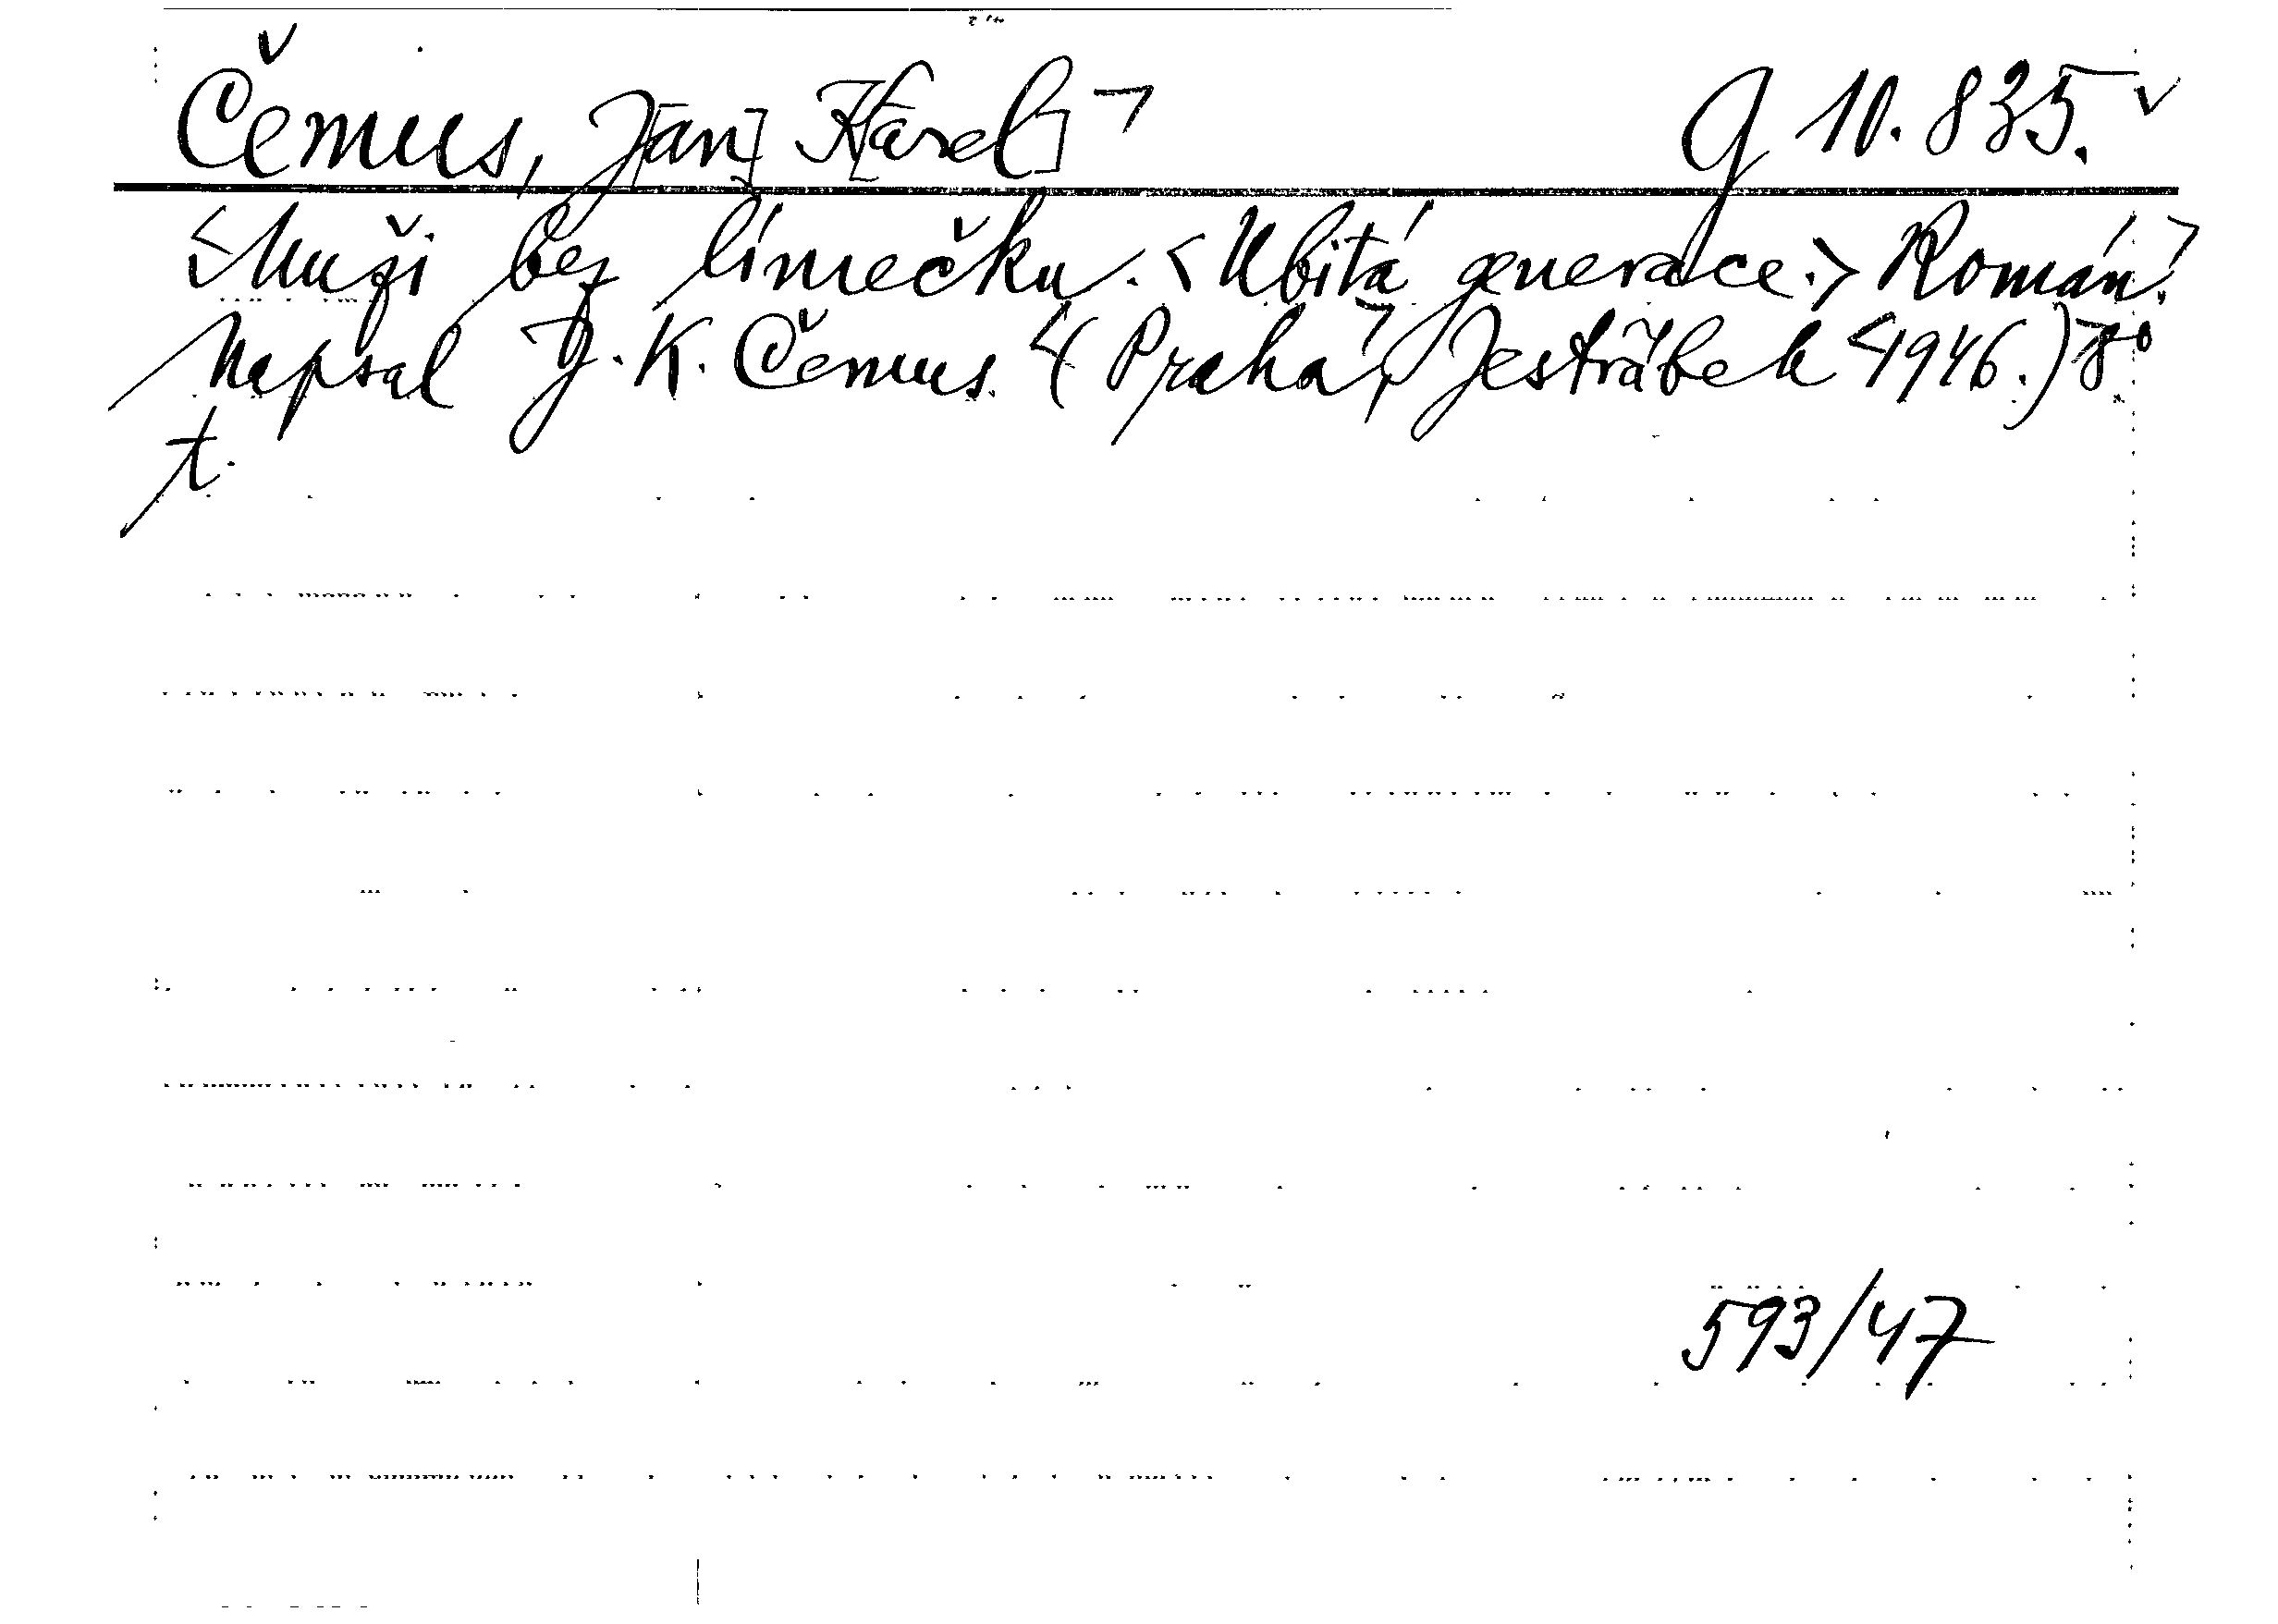 Čemus, J[an] K[arel] G 10.835.
Muži bez límečku. <Ubitá generace.> Román.
Napsal J. K. Čemus. (Praha, Jestřábek 1946.) 8°
t.
593/47